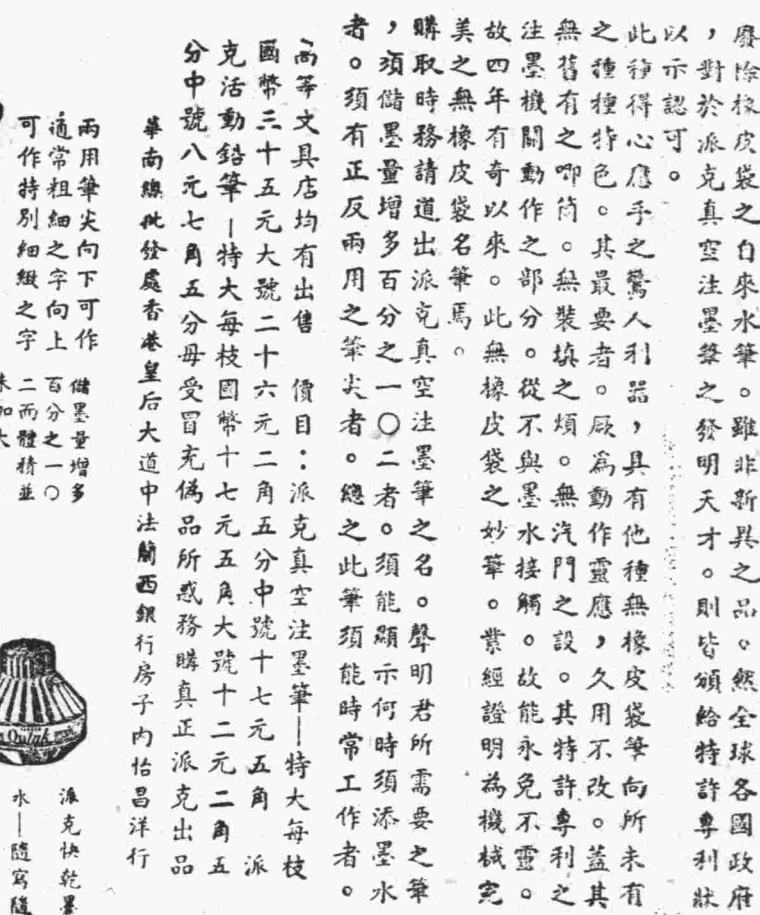 廢除橡皮袋之自來水筆。雖非新異之品。然全球各國政府
，對於派克真空注墨筆之發明天才。則皆頒給特許專利狀
以示認可。
此種得心應手之驚人利器，具有他種無橡皮袋筆向所未有
之種種特色。其最要者。厥為動作靈應，久用不改。蓋其
無舊有之唧筒。無裝填之煩。無汽門之設。其特許專利之
注墨機關動作之部分。從不與墨水接觸。故能永免不靈。
故四年有奇以來。此無橡皮袋之妙筆。業經證明為機械完
美之無橡皮袋名筆焉。
購取時務請道出派克真空注墨筆之名。聲明君所需要之筆
，須儲墨量增多百分之一〇二者。須能顯示何時須添墨水
者。須有正反兩用之筆尖者。總之此筆須能時常工作者。
高等文具店均有出售　價目：派克真空注墨筆—特大每枝
國幣三十五元大號二十六元二角五分中號十七元五角　派
克活動鉛筆—特大每枝國幣十七元五角大號十二元二角五
分中號八元七角五分毋受冒充偽品所惑務購真正派克出品
華南總批發處香港皇后大道中法蘭西銀行房子內怡昌洋行
兩用筆尖向下可作
通常粗細之字向上
可作特別細緻之字
儲墨量增多
百分之一〇
二而體積並
加大
Quink
派克快乾墨
水—隨寫隨